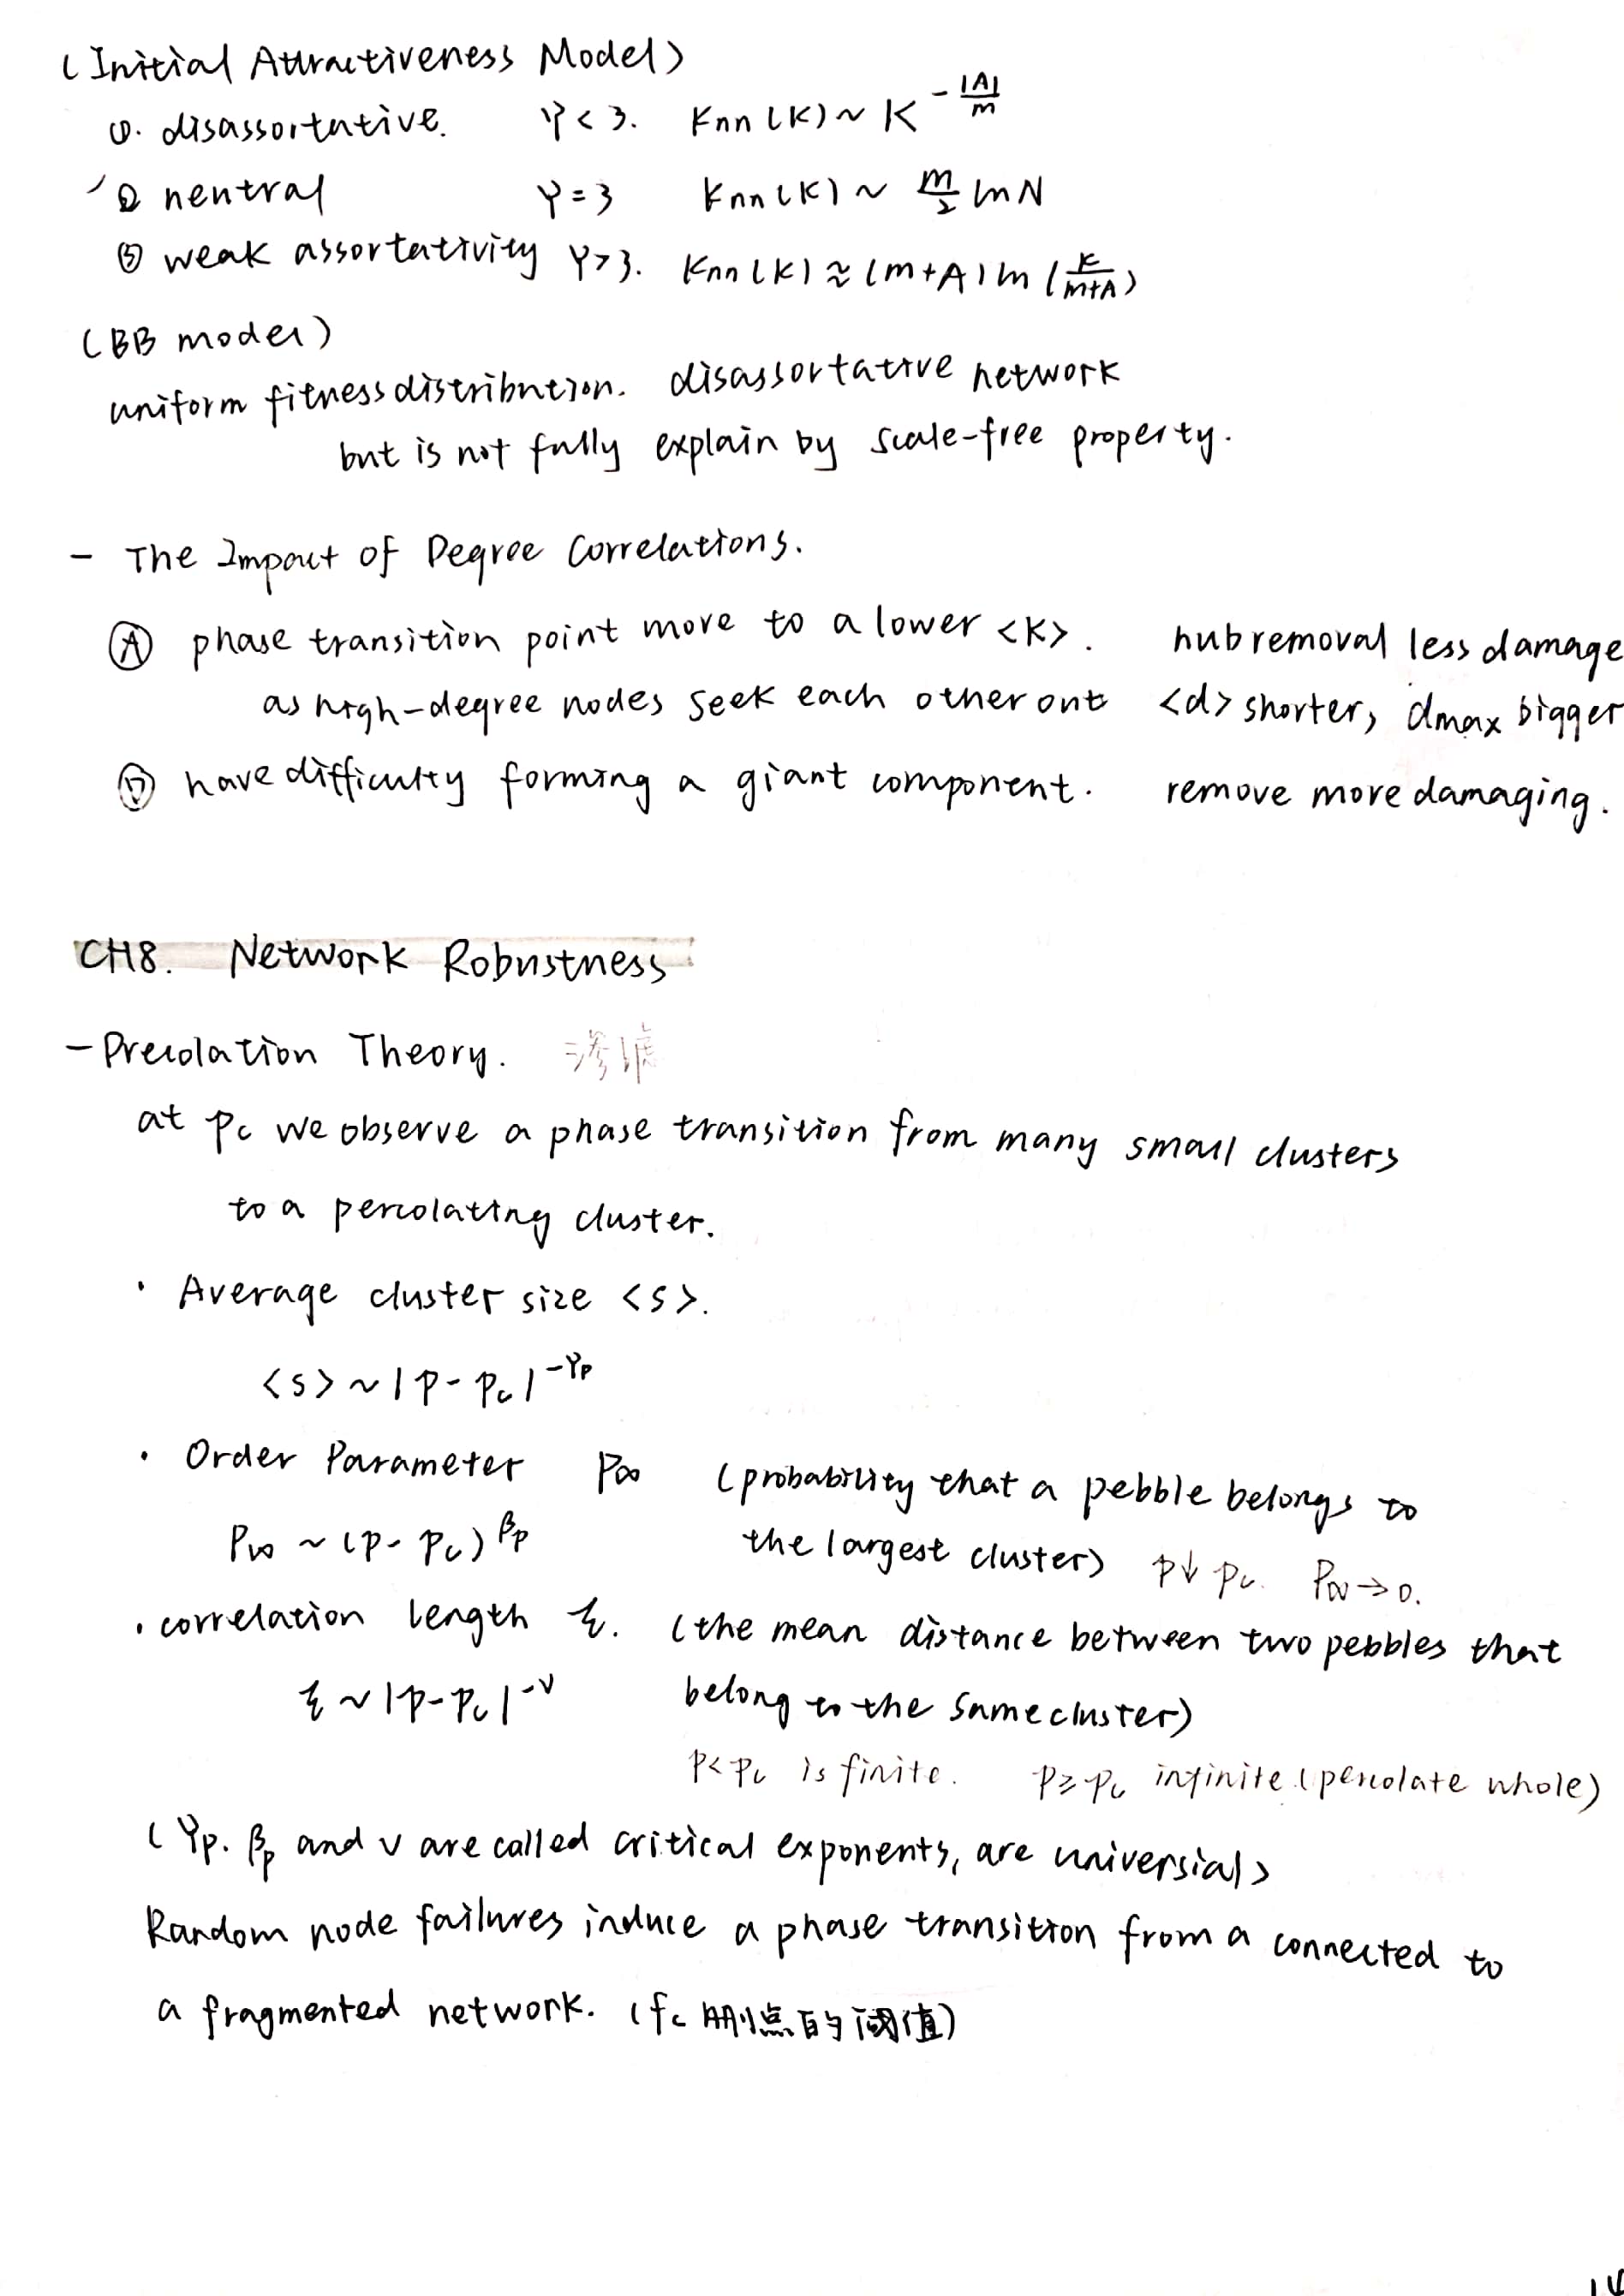 (Initial Attractiveness Model)
①. disassortative. γ < 3. Knn (K) ~ K^(-|A|/m)
② neutral γ = 3 Knn (K) ~ m/2 ln N
③ weak assortativity γ > 3. Knn (K) ≈ (m+A) ln (K/(m+A))
(BB model)
uniform fitness distribution. disassortative network
but is not fully explain by scale-free property.
- The Impact of Degree Correlations.
Ⓐ phase transition point move to a lower <K>. hub removal less damage
as high-degree nodes seek each other out <d> shorter, dmax bigger
Ⓓ have difficulty forming a giant component. remove more damaging.
CH8. Network Robustness
- Precolation Theory. 渗滤
at pc we observe a phase transition from many small clusters
to a percolating cluster.
· Average cluster size <s>.
<s> ~ |p - pc|^(-γp)
· Order Parameter P∞ (probability that a pebble belongs to
P∞ ~ (p - pc)^βp the largest cluster) p↓ pc. P∞ → 0.
· correlation length ξ. (the mean distance between two pebbles that
ξ ~ |p - pc|^(-ν) belong to the same cluster)
p < pc is finite. p ≥ pc infinite (percolate whole)
(γp. βp and ν are called critical exponents, are universial)
Random node failures induce a phase transition from a connected to
a fragmented network. (fc 删点的阈值)